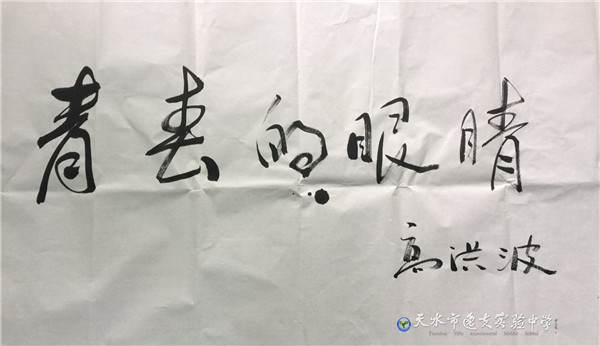 青春的眼睛
高洪波
天水市逸夫实验中学